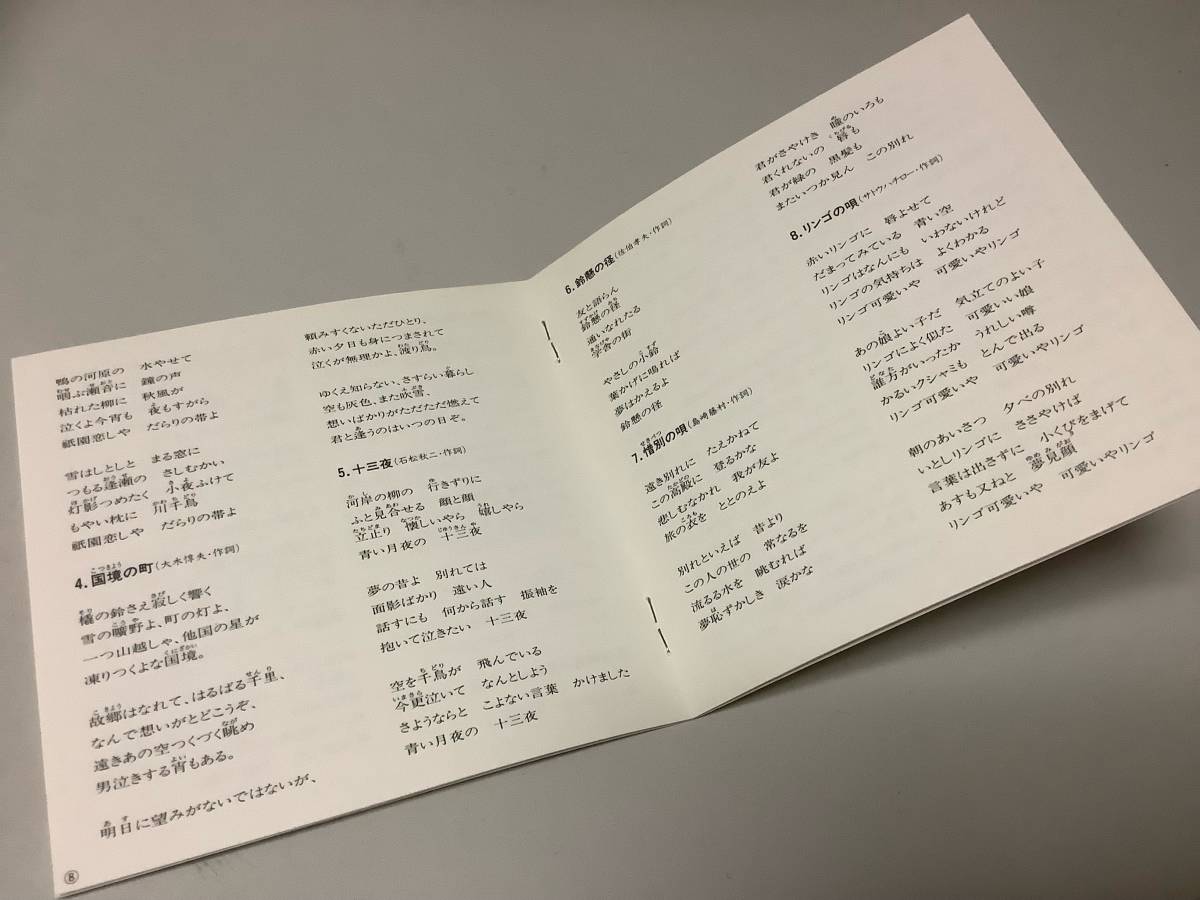 鴨の河原の　水やせて
咽ぶ瀬音に　鐘の声
枯れた柳に　秋風が
泣くよ今宵も　夜もすがら
祇園恋しや　だらりの帯よ
雪はしとしと　まる窓に
つもる逢瀬の　さしむかい
灯影つめたく　小夜ふけて
もやい枕に　川千鳥
祇園恋しや　だらりの帯よ
4.国境の町(大木惇夫・作詞)
橇の鈴さえ寂しく響く
雪の曠野よ、町の灯よ、
一つ山越しゃ、他国の星が
凍りつくよな国境。
故郷はなれて、はるばる千里、
なんで想いがとどこうぞ、
遠きあの空つくづく眺め
男泣きする宵もある。
明日に望みがないではないが、
⑧
頼みすくないただひとり、
赤い夕日も身につまされて
泣くが無理かよ、渡り鳥。
ゆくえ知らない、さすらい暮らし
空も灰色、また吹雪、
想いばかりがただただ燃えて
君と逢うのはいつの日ぞ。
5.十三夜(石松秋二・作詞)
河岸の柳の　行きずりに
ふと見合せる　顔と顔
立止り　懐しいやら　嬉しやら
青い月夜の　十三夜
夢の昔よ　別れては
面影ばかり　遠い人
話すにも　何から話す　振袖を
抱いて泣きたい　十三夜
空を千鳥が　飛んでいる
今更泣いて　なんとしよう
さようならと　こよない言葉　かけました
青い月夜の　十三夜
6.鈴懸の径(佐伯孝夫・作詞)
友と語らん
鈴懸の径
通いなれたる
学舎の街
やさしの小鈴
葉かげに鳴れば
夢はかえるよ
鈴懸の径
7.惜別の唄(島崎藤村・作詞)
遠き別れに　たえかねて
この高殿に　登るかな
悲しむなかれ　我が友よ
旅の衣を　ととのえよ
別れといえば　昔より
この人の世の　常なるを
流るる水を　眺むれば
夢恥ずかしき　涙かな
君がさやけき　瞳のいろも
君くれないの　唇も
君が緑の　黒髪も
またいつか見ん　この別れ
8.リンゴの唄(サトウハチロー・作詞)
赤いリンゴに　唇よせて
だまってみている　青い空
リンゴはなんにも　いわないけれど
リンゴの気持ちは　よくわかる
リンゴ可愛いや　可愛いやリンゴ
あの娘よい子だ　気立てのよい子
リンゴによく似た　可愛いい娘
誰方がいったか　うれしい噂
かるいクシャミも　とんで出る
リンゴ可愛いや　可愛いやリンゴ
朝のあいさつ　夕べの別れ
いとしリンゴに　ささやけば
言葉は出さずに　小くびをまげて
あすも又ねと　夢見顔
リンゴ可愛いや　可愛いやリンゴ